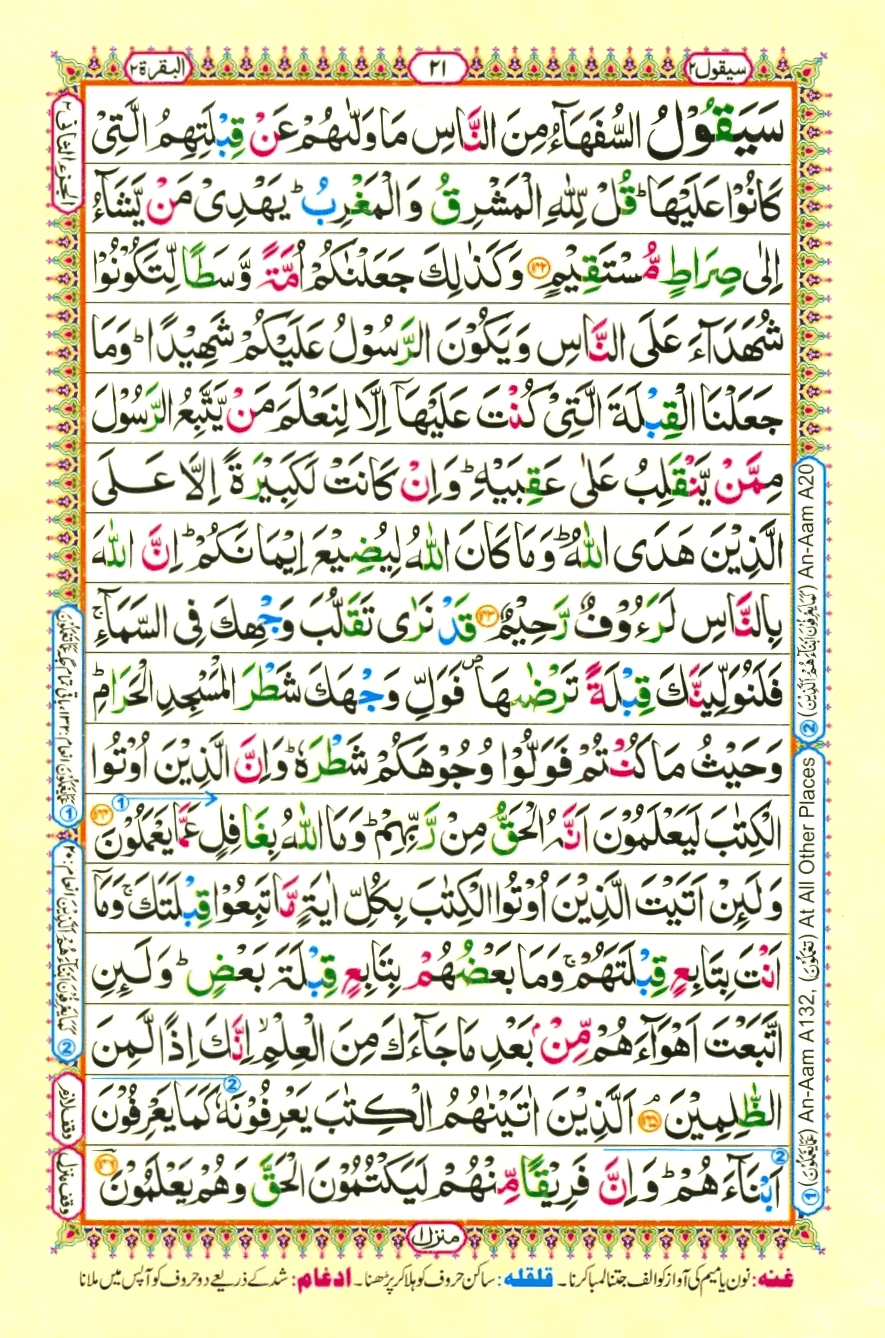 سيقول ٢
٢١
البقرة ٢
الجزء الثانى ٢
سَيَقُوْلُ السُّفَهَآءُ مِنَ النَّاسِ مَا وَلّٰىهُمْ عَنْ قِبْلَتِهِمُ الَّتِیْ
كَانُوْا عَلَيْهَا ؕ قُلْ لِّلّٰهِ الْمَشْرِقُ وَالْمَغْرِبُ ؕ يَهْدِیْ مَنْ يَّشَآءُ
اِلٰی صِرَاطٍ مُّسْتَقِيْمٍ ﴿۱۴۲﴾ وَكَذٰلِكَ جَعَلْنٰكُمْ اُمَّةً وَّسَطًا لِّتَكُوْنُوْا
شُهَدَآءَ عَلَی النَّاسِ وَيَكُوْنَ الرَّسُوْلُ عَلَيْكُمْ شَهِيْدًا ؕ وَمَا
جَعَلْنَا الْقِبْلَةَ الَّتِیْ كُنْتَ عَلَيْهَاۤ اِلَّا لِنَعْلَمَ مَنْ يَّتَّبِعُ الرَّسُوْلَ
مِمَّنْ يَّنْقَلِبُ عَلٰی عَقِبَيْهِ ؕ وَاِنْ كَانَتْ لَكَبِيْرَةً اِلَّا عَلَی
الَّذِيْنَ هَدَی اللّٰهُ ؕ وَمَا كَانَ اللّٰهُ لِيُضِيْعَ اِيْمَانَكُمْ ؕ اِنَّ اللّٰهَ
بِالنَّاسِ لَرَءُوْفٌ رَّحِيْمٌ ﴿۱۴۳﴾ قَدْ نَرٰی تَقَلُّبَ وَجْهِكَ فِی السَّمَآءِ ۚ
فَلَنُوَلِّيَنَّكَ قِبْلَةً تَرْضٰىهَا ۪ فَوَلِّ وَجْهَكَ شَطْرَ الْمَسْجِدِ الْحَرَامِ ؕ
وَحَيْثُ مَا كُنْتُمْ فَوَلُّوْا وُجُوْهَكُمْ شَطْرَهٗ ؕ وَاِنَّ الَّذِيْنَ اُوْتُوا
الْكِتٰبَ لَيَعْلَمُوْنَ اَنَّهُ الْحَقُّ مِنْ رَّبِّهِمْ ؕ وَمَا اللّٰهُ بِغَافِلٍ عَمَّا يَعْمَلُوْنَ ﴿۱۴۴﴾
وَلَئِنْ اَتَيْتَ الَّذِيْنَ اُوْتُوا الْكِتٰبَ بِكُلِّ اٰيَةٍ مَّا تَبِعُوْا قِبْلَتَكَ ۚ وَمَاۤ
اَنْتَ بِتَابِعٍ قِبْلَتَهُمْ ۚ وَمَا بَعْضُهُمْ بِتَابِعٍ قِبْلَةَ بَعْضٍ ؕ وَلَئِنِ
اتَّبَعْتَ اَهْوَآءَهُمْ مِّنْۢ بَعْدِ مَا جَآءَكَ مِنَ الْعِلْمِ ۙ اِنَّكَ اِذًا لَّمِنَ
الظّٰلِمِيْنَ ﴿۱۴۵﴾ۘ اَلَّذِيْنَ اٰتَيْنٰهُمُ الْكِتٰبَ يَعْرِفُوْنَهٗ كَمَا يَعْرِفُوْنَ
اَبْنَآءَهُمْ ؕ وَاِنَّ فَرِيْقًا مِّنْهُمْ لَيَكْتُمُوْنَ الْحَقَّ وَهُمْ يَعْلَمُوْنَ ﴿۱۴۶﴾
① (عَمَّا يَعْمَلُوْنَ) An-Aam A132, (تَعْمَلُوْنَ) At All Other Places
② (كَمَا يَعْرِفُوْنَ اَبْنَآءَهُمْ اَلَّذِيْنَ) An-Aam A20
وقف لازم
وقف منزل
منزل ١
غنه: نون یا میم کی آواز کو الف جتنا لمبا کرنا۔ قلقله: ساکن حروف کو ہلا کر پڑھنا۔ ادغام: شد کے ذریعے دو حروف کو آپس میں ملانا